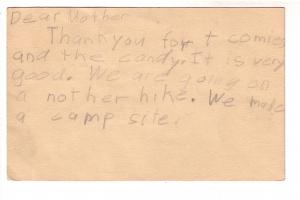 Dear Mother
Thankyou for t comies
and the candy. It is very
good. We are going on
a nother hike. We made
a camp site.